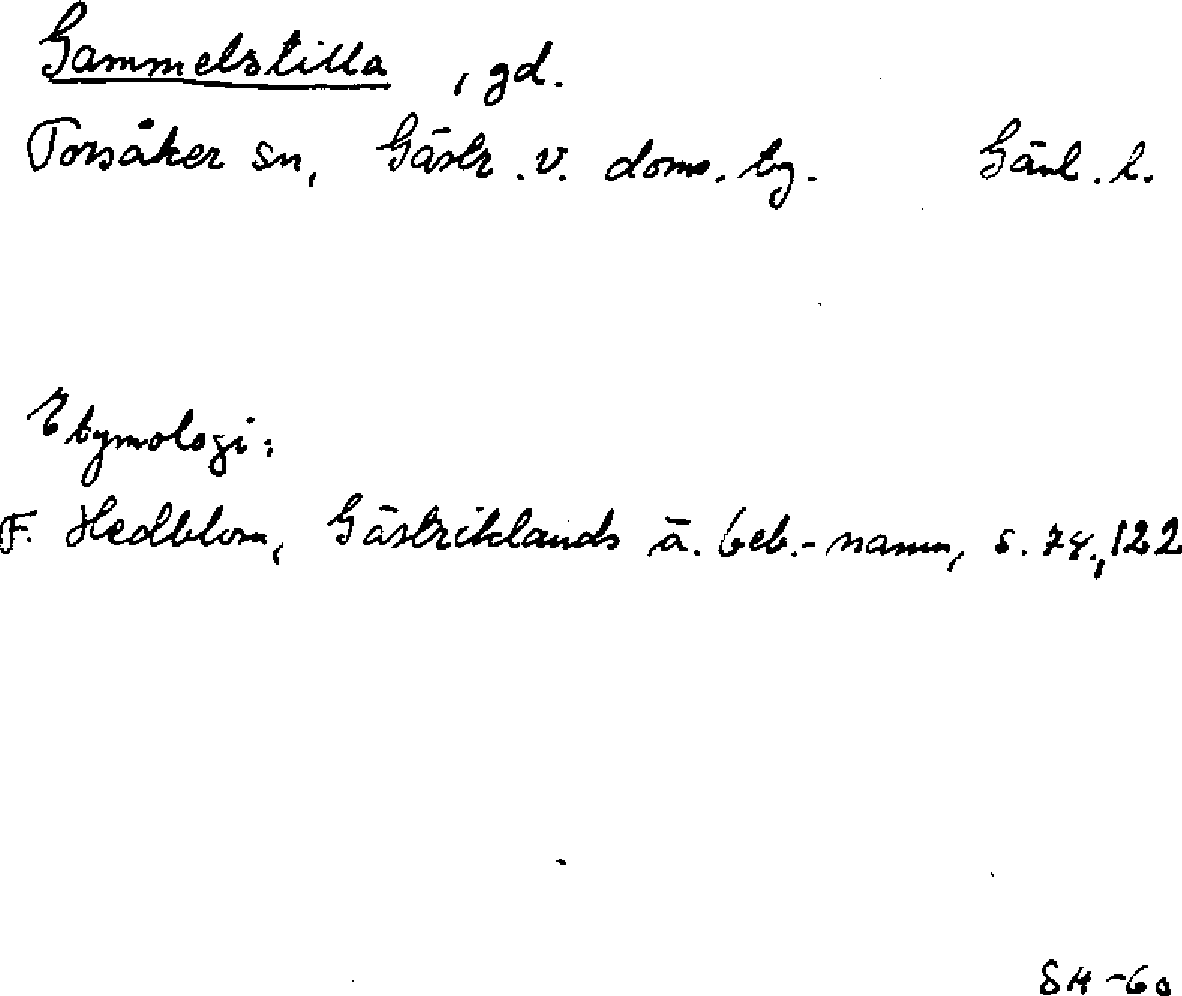 Gammelstilla, gd.
Torsåker sn, Gästr. v. doms. tg. Gävl. l.
Etymologi:
F. Hedblom, Gästriklands ä. beb.-namn, s. 78, 122
SH -60